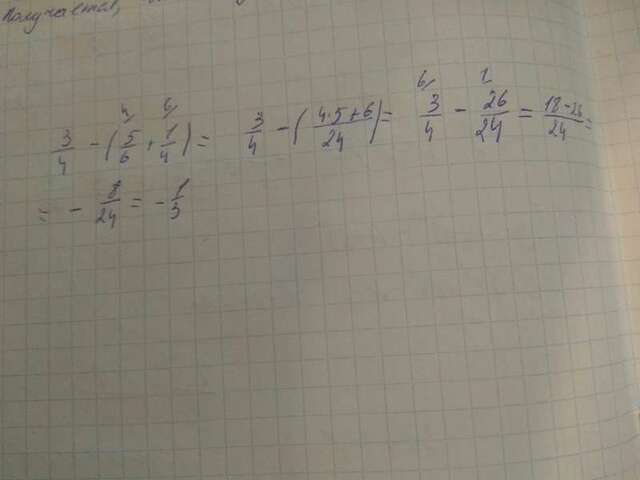 Получается,
3/4 - (5/6 + 1/4) = 3/4 - (4·5+6/24) = 3/4 - 26/24 = 18-26/24 =
= - 8/24 = - 1/3